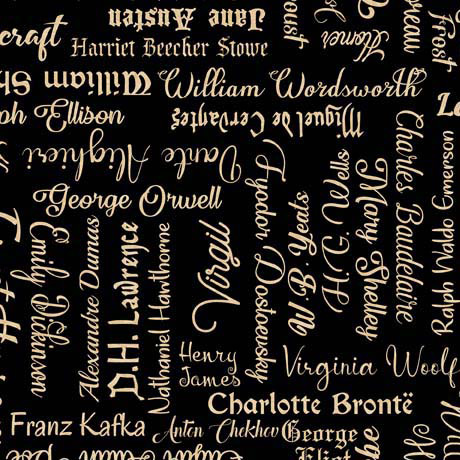 Jane Austen
craft
Harriet Beecher Stowe
oust
Homer
eau
Frost
William Sh
William Wordsworth
ph Ellison
Miguel de Cervantes
Dante Alighieri
George Orwell
Emily Dickinson
Alexandre Dumas
D.H. Lawrence
Nathaniel Hawthorne
Virgil
Fyodor Dostoevsky
W B Yeats
H.G. Wells
Mary Shelley
Charles Baudelaire
Ralph Waldo Emerson
Henry
James
Virginia Woolf
Charlotte Brontë
Franz Kafka
Anton Chekhov
George
Eliot